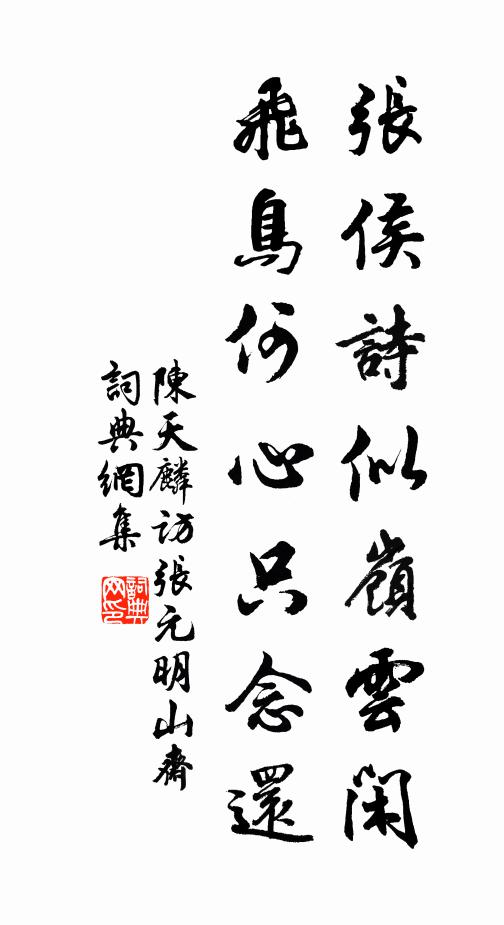 張侯詩似嶺雲閑
飛鳥何心只念還
陳天麟訪張元明山齋
詞典網集
詞典網印